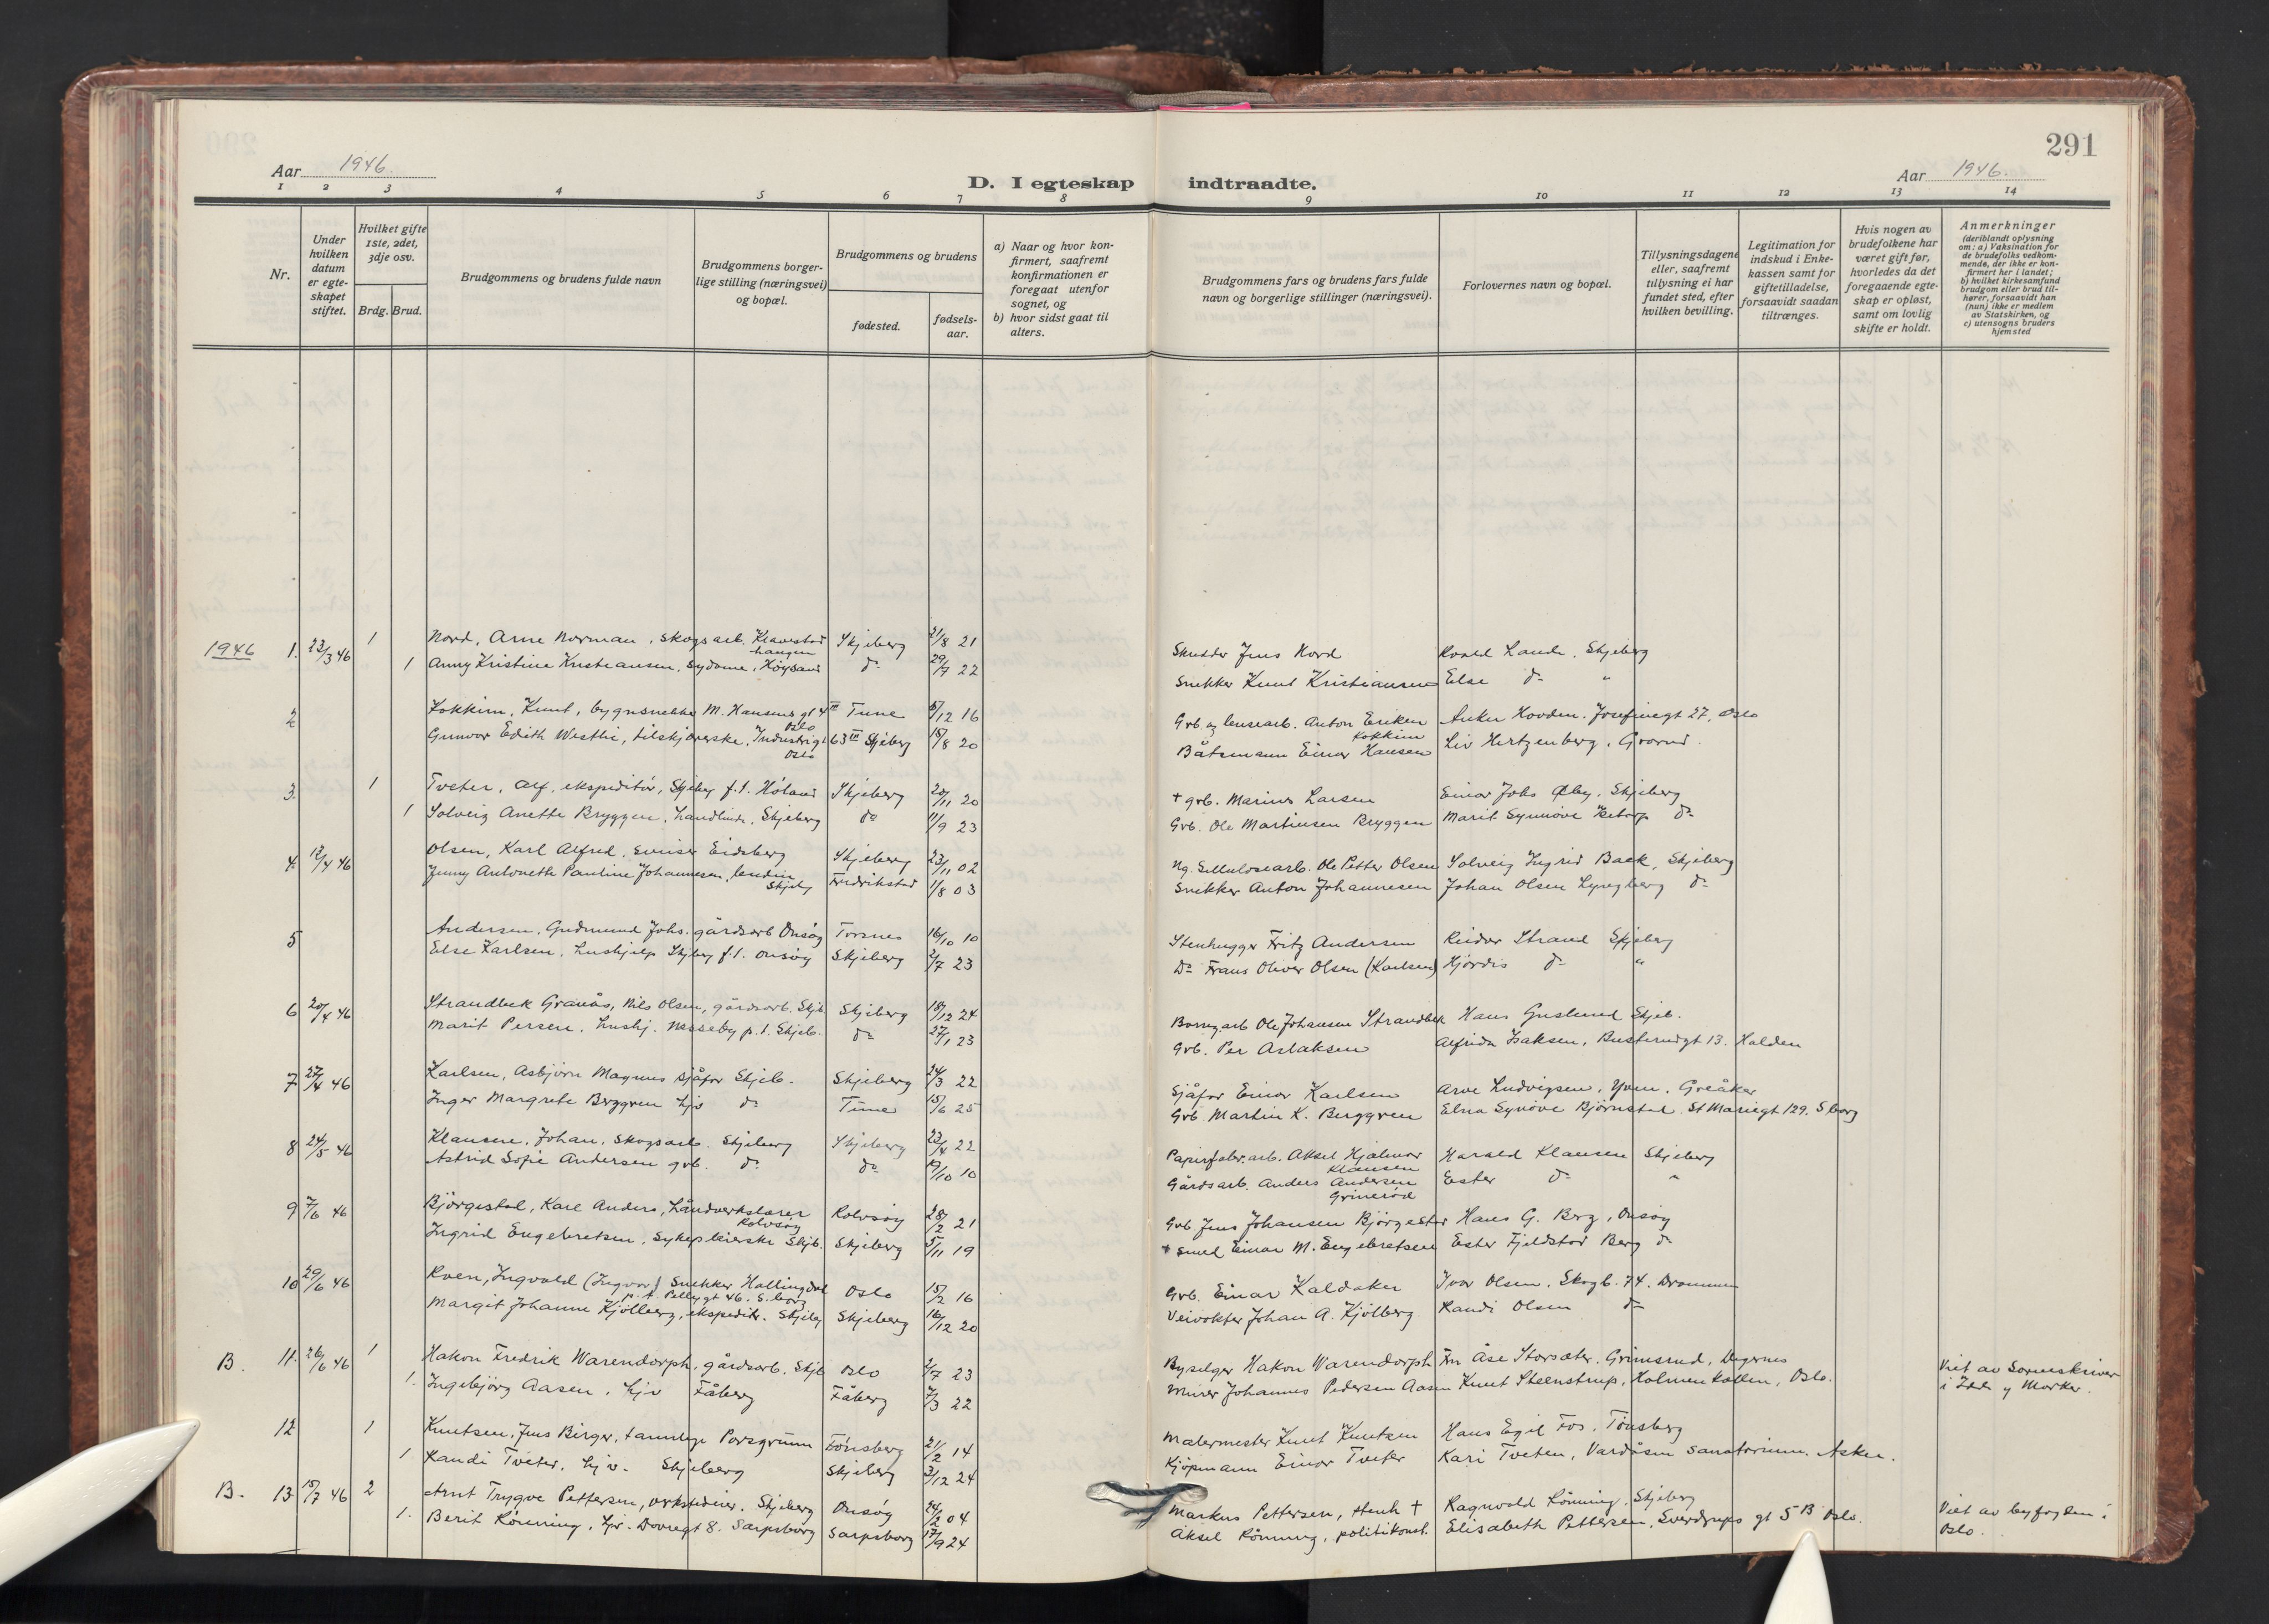 291
Aar 1946.
Aar 1946.
D. I egteskap indtraadte.
1 2 3 4 5 6 7 8 9 10 11 12 13 14
Nr.
Under hvilken datum er egte-skapet stiftet.
Hvilket gifte 1ste, 2det, 3dje osv.
Brdg. Brud.
Brudgommens og brudens fulde navn
Brudgommens borger-lige stilling (næringsvei) og bopæl.
Brudgommens og brudens
fødested.
fødsels-aar.
a) Naar og hvor kon-firmert, saafremt konfirmationen er foregaat utenfor sognet, og
b) hvor sidst gaat til alters.
Brudgommens fars og brudens fars fulde navn og borgerlige stillinger (næringsvei).
Forlovernes navn og bopæl.
Tillysningsdagene eller, saafremt tillysning ei har fundet sted, efter hvilken bevilling.
Legitimation for indskud i Enke-kassen samt for giftetilladelse, forsaavidt saadan tiltrænges.
Hvis nogen av brudefolkene har været gift før, hvorledes da det foregaaende egte-skap er opløst, samt om lovlig skifte er holdt.
Anmerkninger (deriblandt oplysning om: a) Vaksination for de brudefolks vedkom-mende, der ikke er kon-firmert her i landet; b) hvilket kirkesamfund brudgom eller brud til-hører, forsaavidt han (hun) ikke er medlem av Statskirken, og c) utensogns bruders hjemsted
1946 1. 23/3 46 1 Nord, Arne Norman, skogsarb. Skjeberg 21/8 21 Jens Nord Roald Lande, Skjeberg
1 Anny Kristine Kristiansen, sydame, Høysand do 29/7 22 Snekker Knut Kristiansen Else do "
2 Kokkim, Knut, bygnsnekker M. Hansens gt 4 III Oslo Tune 5/12 16 Grb. og lensearb. Anton Eriksen Kokkim Anker Hovden. Josefinegt 27, Oslo
Gunvor Edith Westlie, tilskjærerske, Industrigt 63 III Oslo Skjeberg 15/8 20 Båtsmann Einar Hansen Liv Hertzenberg, Grorud.
3. 1 Tveter, Alf, ekspeditør, Skjeberg f.t. Høland Skjeberg 20/11 20 + grb. Marius Larsen Einar Johs Øby, Skjeberg
1 Solveig Anette Bryggen, Skjeberg do 11/9 23 Grb. Ole Martinsen Bryggen Marit Synnöve do
4. 13/4 46 Olsen, Karl Alfred, Eidsberg Skjeberg 23/11 02 Ng. Sellulosearb. Ole Petter Olsen Solveig Ingrid Baek, Skjeberg
Jenny Antonette Pauline Johannesen, Skjebg Fredrikstad 1/8 03 Snekker Anton Johannesen Johan Olsen Lyngberg do
5 Andersen, Gudmund Johs. gårdsarb Onsøy Torsnes 16/10 10 Stenhugger Fritz Andersen Reidar Strand Skjeberg
Else Karlsen, hushjelp Skjeberg f.t. Onsøy Skjeberg 2/7 23 Do Frans Oliver Olsen (Karlsen) Hjördis do "
6 20/4 46 Strandbek Granås, Nils Olsen, gårdsarb. Skjb Skjeberg 18/12 24 Ole Johansen Strandbek Hans Grislund Skjeb.
Marit Persen, hushj. Nesseby p.t. Skjeb. do 27/1 23 Grb. Per Aslaksen Alfrida Isaksen, Busterudgt 13. Halden
7 27/4 46 Karlsen, Asbjörn Magnus sjåfør Skjeb. Skjeberg 24/3 22 Sjåfør Einar Karlsen Arve Ludvigsen, Yven, Greåker
Inger Margrete Berggren hjv do Tune 15/6 25 Grb. Martin K. Berggren Elna Synöve Björnstad. St Mariegt 129. S.borg
8 24/5 46 Klausen, Johan, skogsarb. Skjeberg Skjeberg 23/4 22 Papirfabr.arb. Aksel Hjalmar Klausen Harald Klausen Skjeberg
Astrid Sofie Andersen grb. do do 19/10 10 Gårdsarb. Anders Andersen Grinerød Ester do "
9 7/6 46 Björgestad, Kare Anders, Håndverkslærer Rolvsøy Rolvsøy 28/2 21 Grb Jens Johansen Björgestad Hans G. Berg, Onsøy
Ingrid Engebretsen, sykepleierske Skjb. Skjeberg 5/11 19 + Smed Einar M. Engebretsen Ester Fjeldstad Berg do
10 29/6 46 Roen, Ingvald (Ingvar) Snekker Hallingdal p.t. Pellygt 46. S.borg Oslo 15/2 16 Grb. Einar Kaldaker Ivar Olsen, Skogb. 74. Drammen
Margit Johanne Kjölberg, ekspeditr. Skjebg Skjeberg 16/12 20 Veivokter Johan A. Kjölberg Randi Olsen do
B. 11. 26/6 46 1 Hakon Fredrik Warendorph, gårdsarb. Skjb Oslo 2/7 23 Byselger Hakon Warendorph Fru Åse Storsæter, Grimsrud, Degernes Viet av Sorenskriver
1. Ingebjörg Aasen, hjv Fåberg Fåberg 7/3 22 Murer Johannes Pedersen Aasen Knut Steenstrup, Holmenkollen, Oslo. i Idd og Marker.
12 1 Knutsen, Jens Birger, tannlege Porsgrunn Tönsberg 21/2 14 Malermester Knut Knutsen Hans Egil Fos, Tönsberg
1 Randi Tveter, hjv. Skjeberg Skjeberg 31/12 24 Kjöpmann Einar Tveter Kari Tveten, Vardåsen sanatorium. Asker.
B. 13 15/7 46 2 Arnt Trygve Pettersen, Skjeberg Onsøy 24/2 04 Markus Pettersen, stenh + Ragnvald Rönning, Skjeberg Viet av byfogden i
1. Berit Rönning, hjv. Dovregt 8. Sarpsborg Sarpsborg 17/9 24 Aksel Rönning, politikonst. Elisabeth Pettersen, Sverdrups gt 5 B Oslo. Oslo.